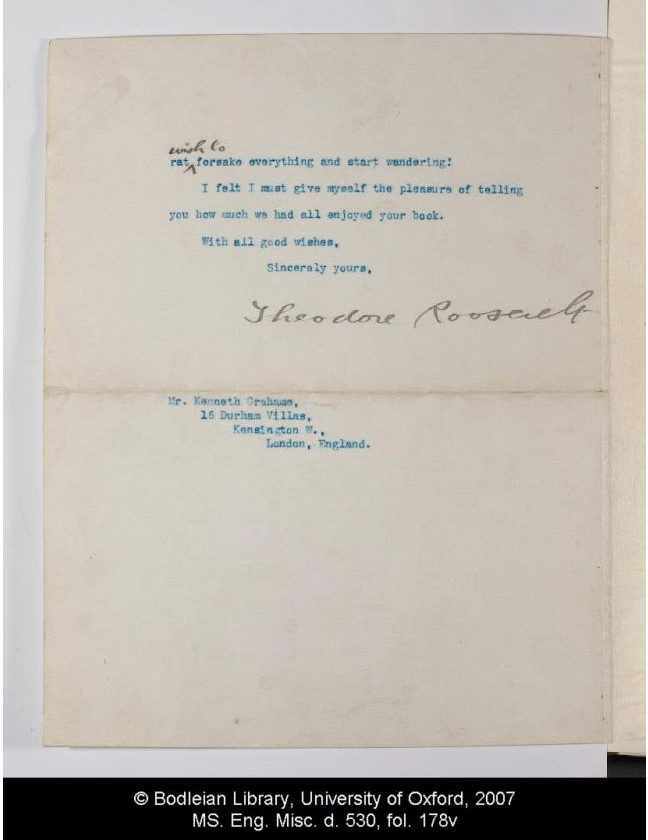 wish to
rat forsake everything and start wandering!
I felt I must give myself the pleasure of telling
you how much we had all enjoyed your book.
With all good wishes,
Sincerely yours,
Theodore Roosevelt
Mr. Kenneth Grahame,
16 Durham Villas,
Kensington W.,
London, England.
© Bodleian Library, University of Oxford, 2007
MS. Eng. Misc. d. 530, fol. 178v